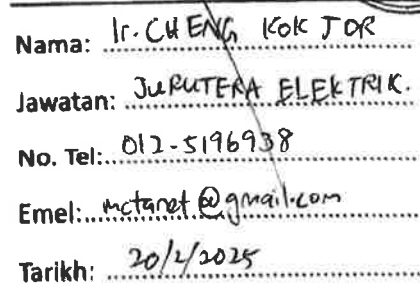 Nama: Ir. CHENG KOK JOR
Jawatan: JURUTERA ELEKTRIK.
No. Tel: 012-5196938
Emel: mctanet@gmail.com
Tarikh: 20/2/2025